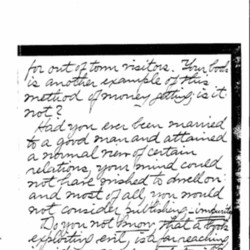 for out of town visitors. Your book
is another example of this
method of money getting is it
not?
Had you ever been married
to a good man and attained
a normal view of certain
relations, your mind could
not have rushed to dwell on
and most of all you would
not consider publishing impurity
Do you not know that a book
exploiting evil, is a far reaching